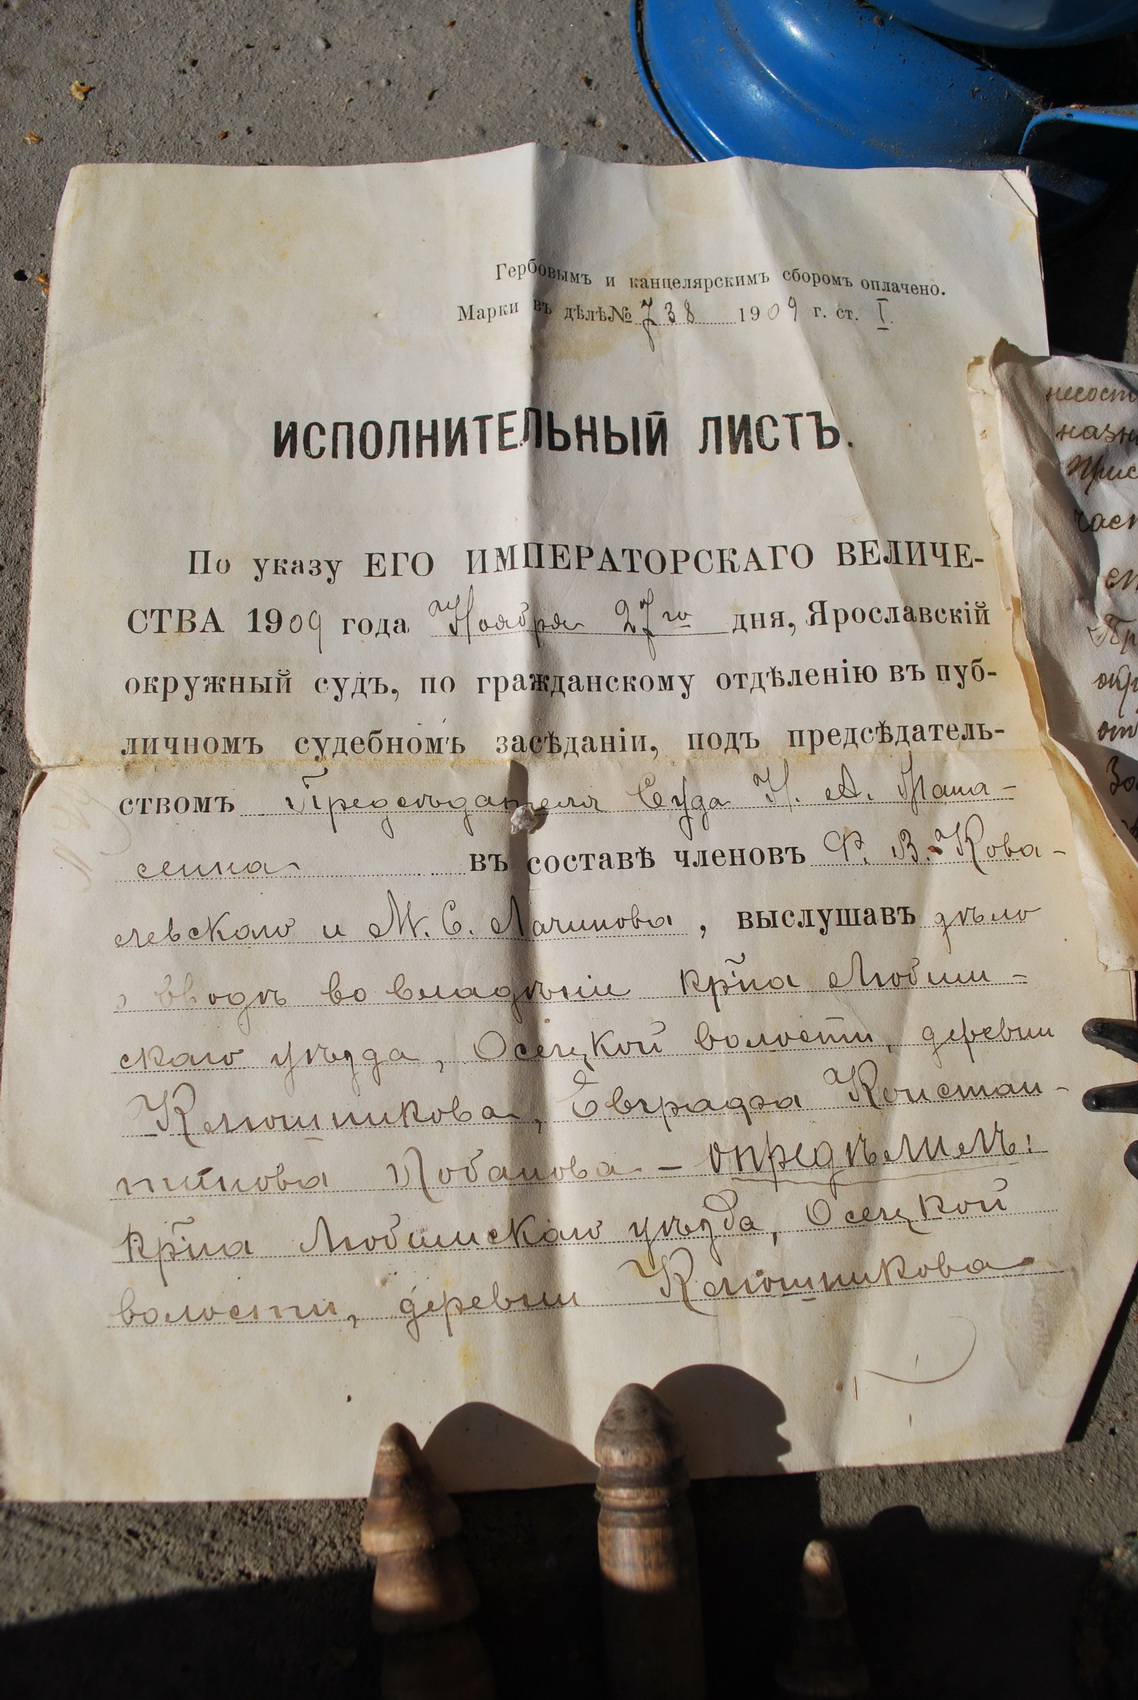 Гербовымъ и канцелярскимъ сборомъ оплачено.
Марки въ дѣлѣ № 738 1909 г. ст. I.
ИСПОЛНИТЕЛЬНЫЙ ЛИСТЪ.
По указу ЕГО ИМПЕРАТОРСКАГО ВЕЛИЧЕ-
СТВА 1909 года Ноября 27го дня, Ярославскій
окружный судъ, по гражданскому отдѣленію въ пуб-
личномъ судебномъ засѣданіи, подъ предсѣдатель-
ствомъ Предсѣдателя Суда Н. А.
въ составѣ членовъ Ф. В. Кова-
левскаго и М. С. Лачинова, выслушавъ дѣло
о вводѣ во владѣніе кр̃на Любим-
скаго уѣзда, Осецкой волости, деревни
Клюшникова, Евграфа Констан-
тинова Лобанова — опредѣлилъ:
кр̃на Любимскаго уѣзда, Осецкой
волости, деревни Клюшникова
несост
назн
Прис
част
Пр
окр